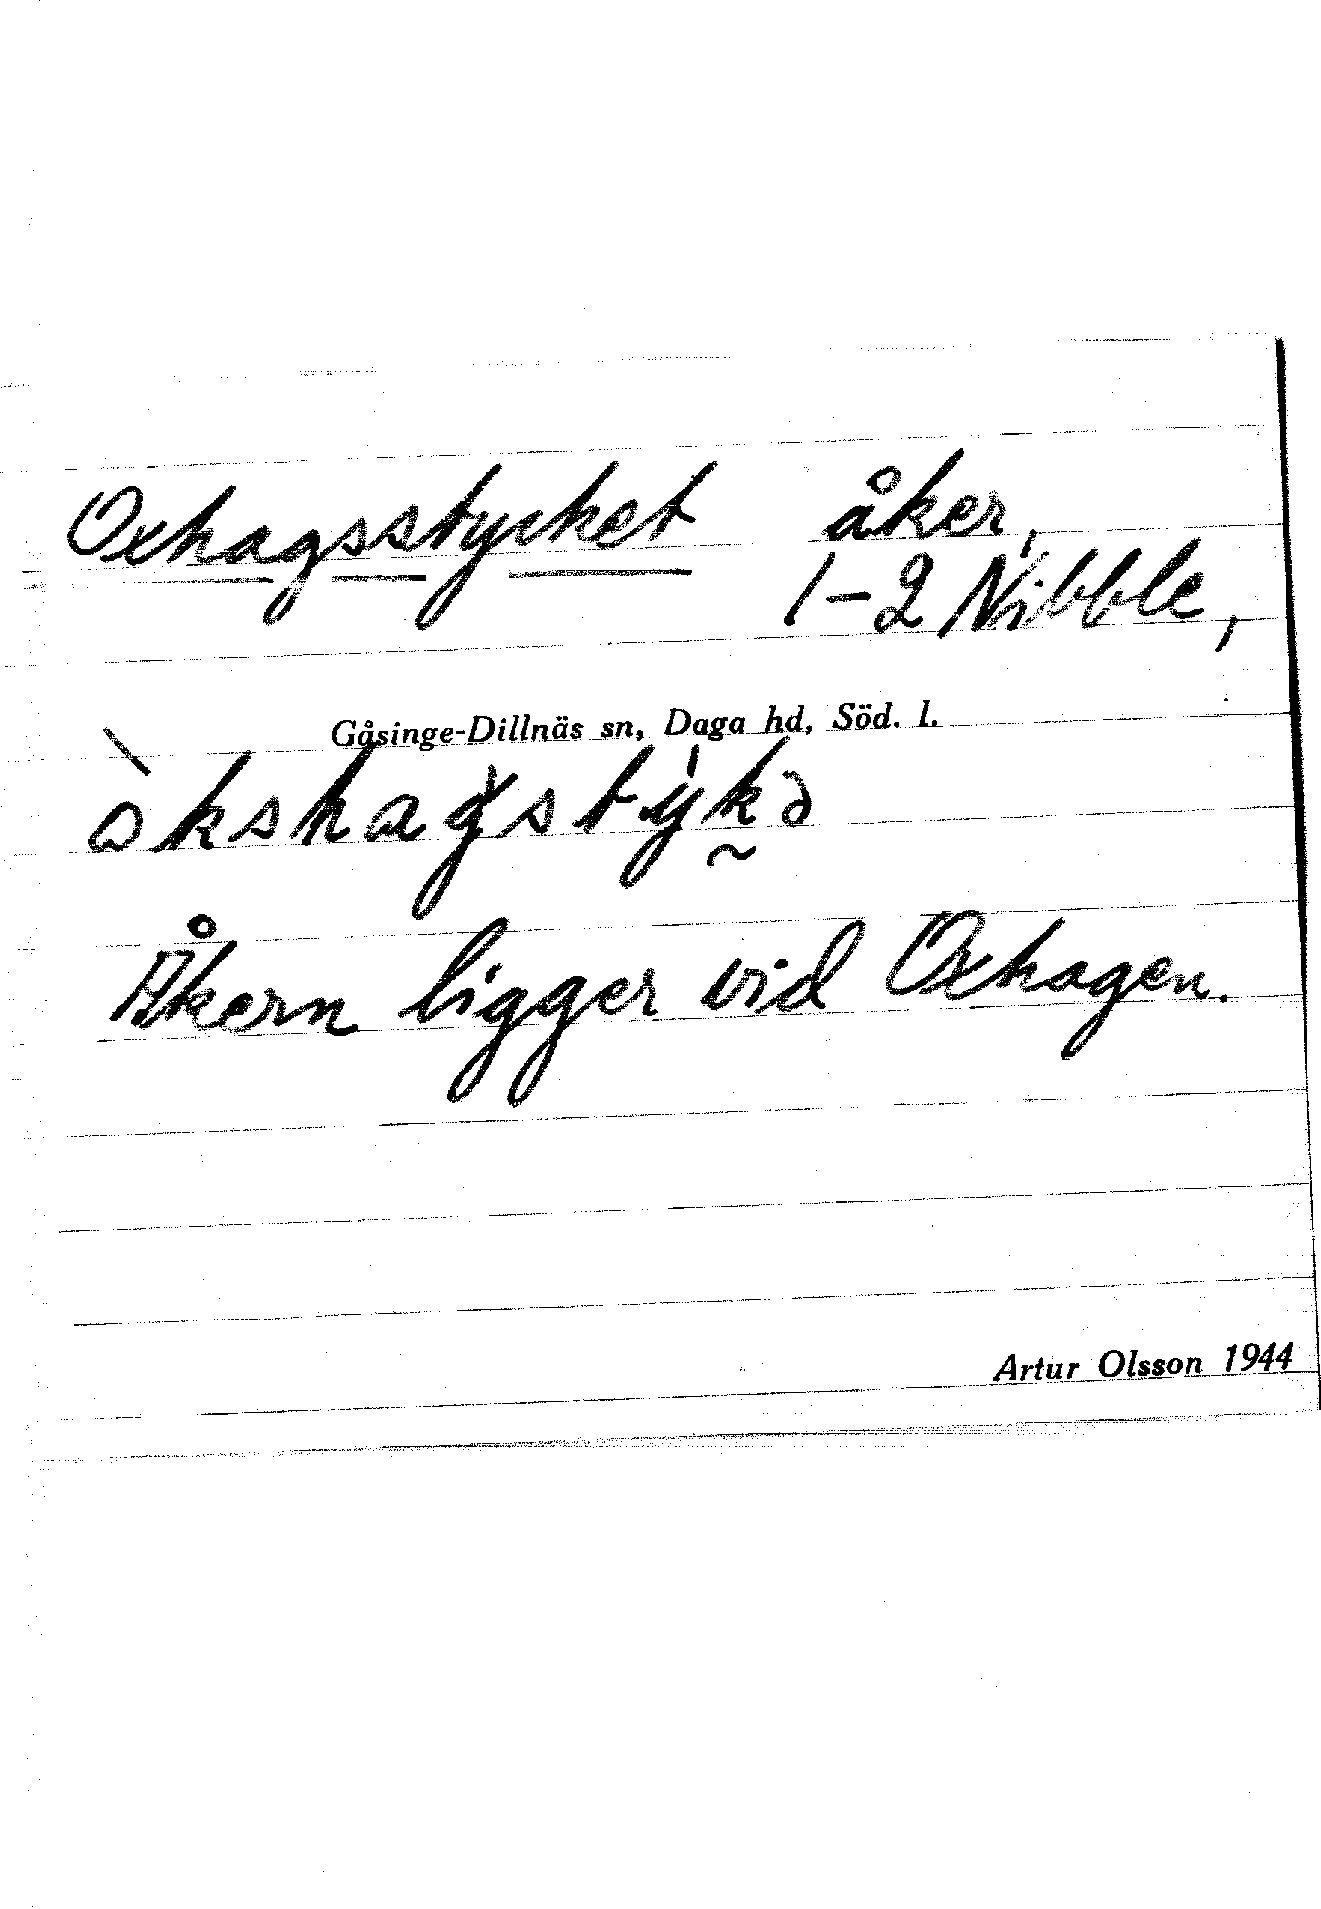 Oxhagsstycket åker,
1-2 Nibble,
Gåsinge-Dillnäs sn, Daga hd, Söd. l.
òkshagstýkə
Åkern ligger vid Oxhagen.
Artur Olsson 1944